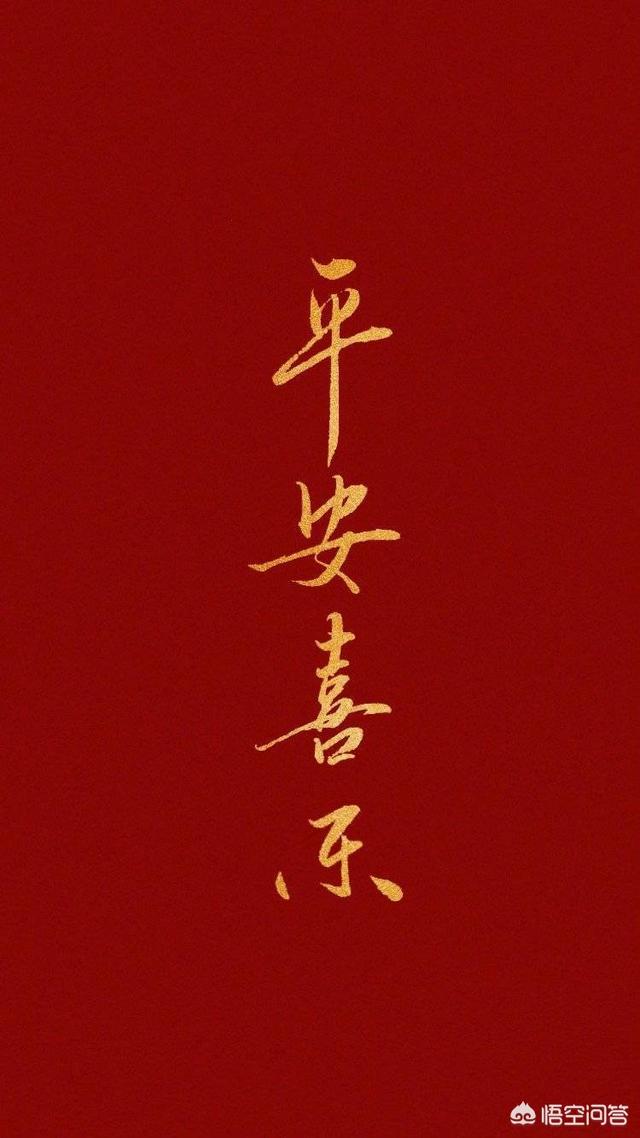 平安喜乐
悟空问答